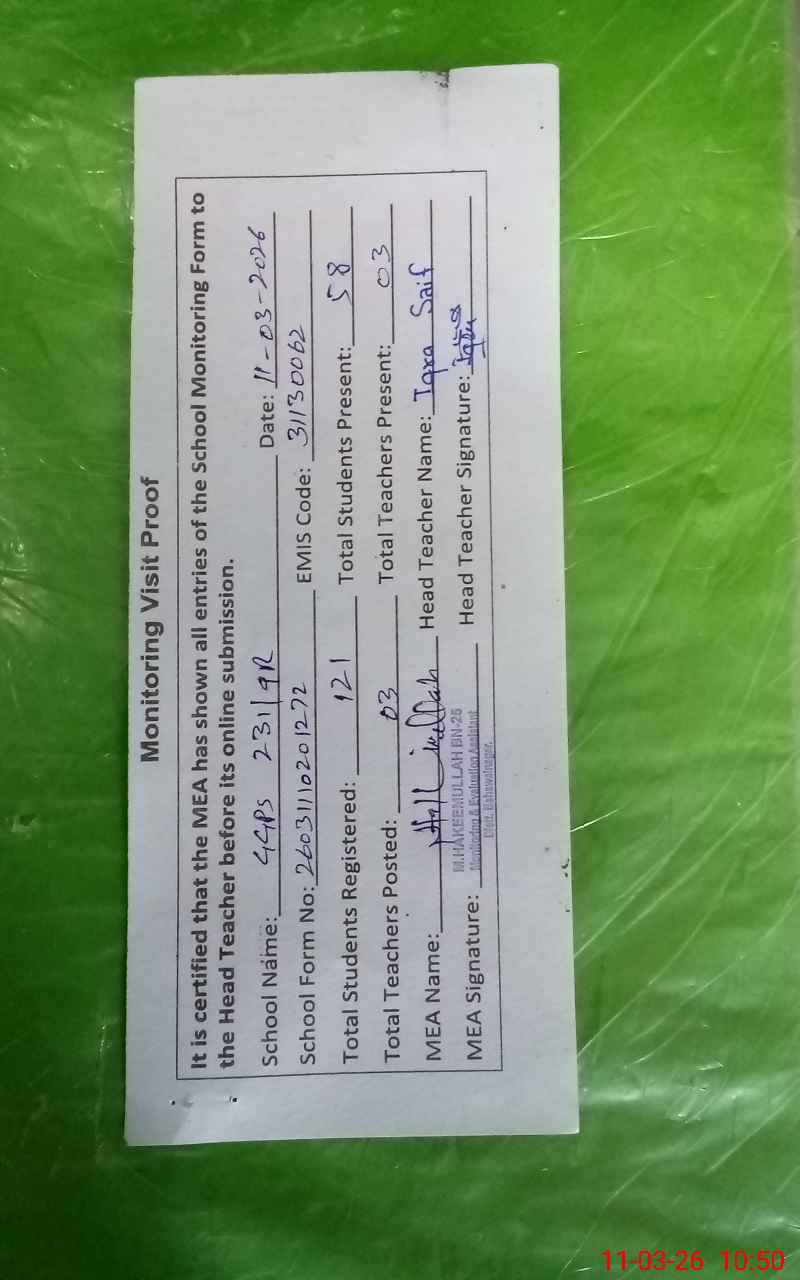 Monitoring Visit Proof
It is certified that the MEA has shown all entries of the School Monitoring Form to
the Head Teacher before its online submission.
School Name: GGPS 231/9R Date: 11-03-2026
School Form No: 260311110201272 EMIS Code: 31130062
Total Students Registered: 121 Total Students Present: 58
Total Teachers Posted: 03 Total Teachers Present: 03
MEA Name: Head Teacher Name: Iqra Saif
MEA Signature: Head Teacher Signature: Iqra
M.HAKEEMULLAH BN-25
Monitoring & Evaluation Assistant
Distt. Bahawalnagar.
11-03-26 10:50